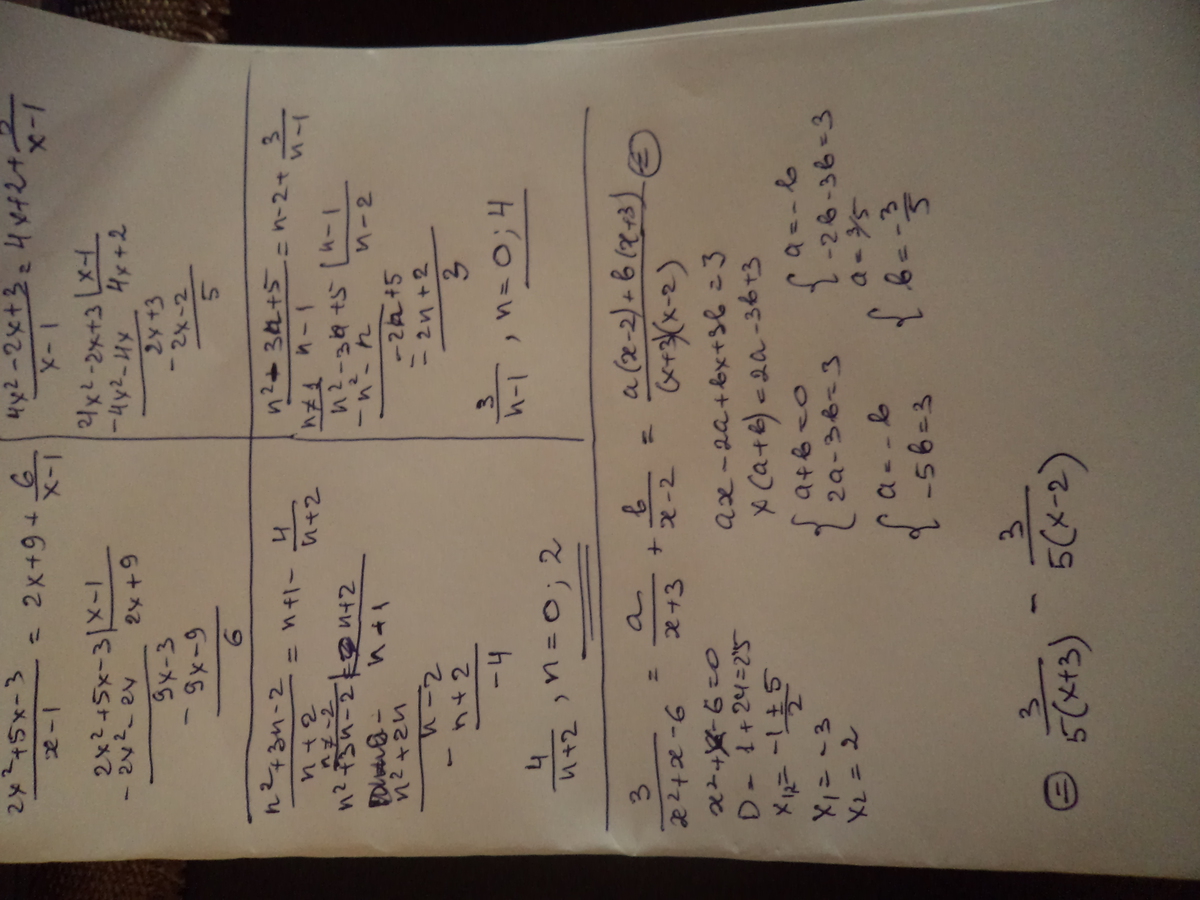 2x²+5x-3 / x-1 = 2x+9 + 6 / x-1
2x²+5x-3 | x-1
- 2x²-2x | 2x+9
9x-3
- 9x-9
6
4x²-2x+3 / x-1 = 4x+2+ / x-1
4x²-2x+3 | x-1
-4x²-4x | 4x+2
2x+3
- 2x-2
5
n²+3n-2 / n+2 = n+1- 4 / n+2
n≠-2
n²+3n-2 | n+2
n²+2n | n+1
n-2
- n+2
-4
4 / n+2 , n=0; 2
n²-3n+5 / n-1 = n-2+ 3 / n-1
n≠1
n²-3n+5 | n-1
- n²-n | n-2
-2n+5
= 2n+2
3
3 / n-1 , n=0; 4
3 / x²+x-6 = a / x+3 + b / x-2 = a(x-2)+b(x+3) / (x+3)(x-2) ⊜
x²+x-6=0
D=1+24=25
x₁,₂= -1±5 / 2
x₁=-3
x₂=2
ax-2a+bx+3b=3
x(a+b)=2a-3b+3
{ a+b=0
2a-3b=3
{ a=-b
-2b-3b=3
{ a=-b
-5b=3
{ a=3/5
b=-3/5
⊜ 3 / 5(x+3) - 3 / 5(x-2)